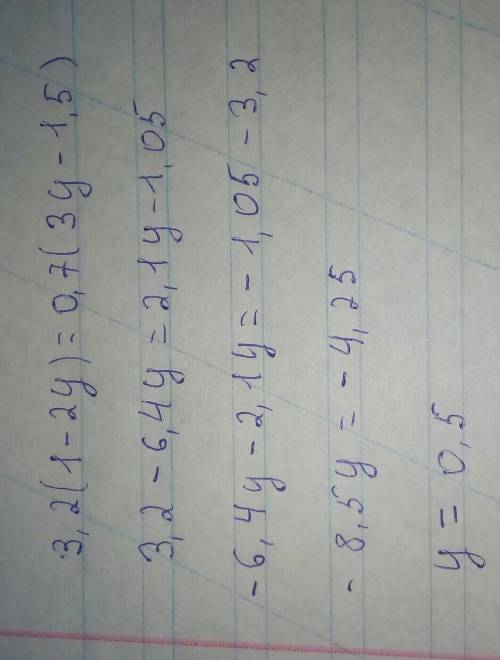 3,2(1-2y)=0,7(3y-1,5)
3,2-6,4y=2,1y-1,05
-6,4y-2,1y=-1,05-3,2
-8,5y=-4,25
y=0,5